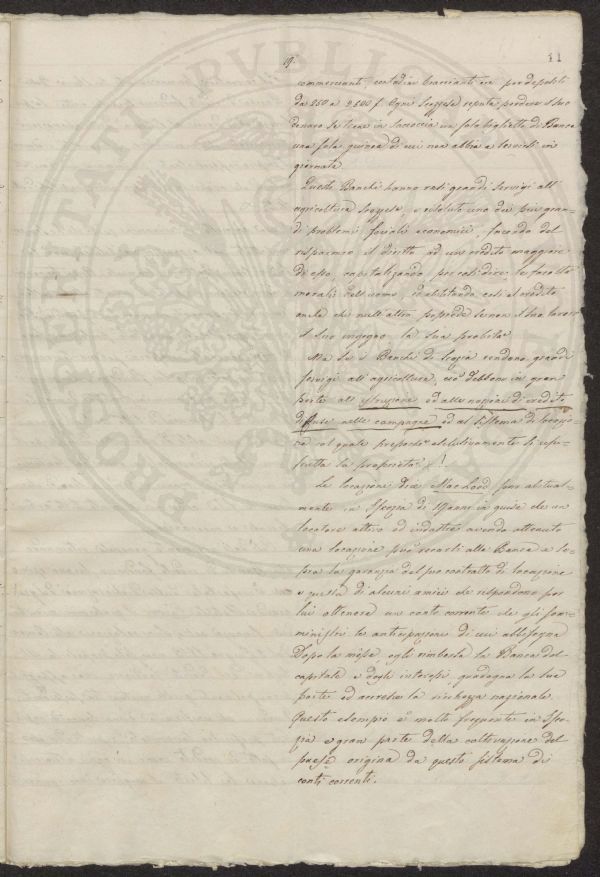 19. 41
commercianti, contadini braccianti ecc. per depositi
da 250 a 2500 f. Ogni Scozzese reputa perdere il suo
denaro se tiene in saccoccia un solo biglietto di Banca
una sola guinea di cui non abbia a servirsi in
giornata.
Queste Banche hanno resi grandi servigi all'
agricoltura scozzese, e risoluto uno dei più gran-
di problemi sociali economici, facendo del
risparmio il diritto ad un credito maggiore
di esso, capitalizzando per così dire le facoltà
morali dell'uomo, ed abilitando così al credito
anche chi null'altro possiede se non il suo lavoro
il suo ingegno la sua probità.
Ma se i Banchi di Scozia rendono grandi
servigi all'agricoltura, ciò debbono in gran
parte all'istruzione ed alle nozioni di credito
diffuse nelle campagne ed al sistema di locazio-
ne col quale esclusivamente si usu-
frutta la proprietà !
Le locazione dice MacLeod sono abitual-
mente in Iscozia di 19 anni in guisa che un
locatore attivo ed industre avendo ottenuto
una locazione può recarsi alla Banca e so-
pra la garanzia del suo contratto di locazione
e questa di alcuni amici che rispondono per
lui ottenere un conto corrente che gli som-
ministri le anticipazioni di cui abbisogna
Dopo la messe, egli rimborsa la Banca del
capitale e degli interessi, guadagna la sua
parte ed accresce la ricchezza nazionale.
Questo esempio è molto frequente in Isco-
zia e gran parte della coltivazione del
paese origina da questo sistema di
conti correnti.
ROBUR PVELLO